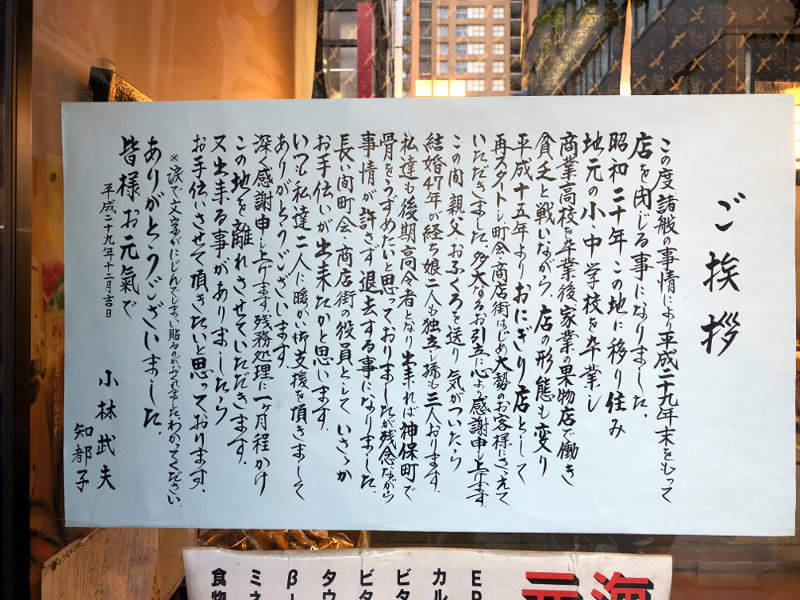 ご挨拶
この度諸般の事情により平成二十九年末をもって
店を閉じる事になりました。
昭和二十年この地に移り住み
地元の小・中学校を卒業し
商業高校を卒業後家業の果物店で働き
貧乏と戦いながら店の形態も変り
平成十五年よりおにぎり店として
再スタートし町会・商店街はじめ大勢のお客様にささえて
いただきました。多大なるお引立に心より感謝申し上げます
この間親父おふくろを送り気がついたら
結婚47年が経ち娘二人も独立し孫も三人おります。
私達も後期高令者となり出来れば神保町で
骨をうずめたいと思っておりましたが残念ながら
事情が許さず退去する事になりました。
長い間町会、商店街の役員としていささか
お手伝いが出来たかと思います。
いつも私達二人に暖かい御支援を頂きまして
ありがとうございます。
深く感謝申し上げます。残務処理に一ヶ月程かけ
この地を離れさせていただきます。
又出来る事がありましたら
お手伝いさせて頂きたいと思っております。
※涙で文字がにじんでしまい貼るのがおくれましたわかってください。
ありがとうございました。
皆様お元気で
平成二十九年十二月吉日
小林武夫
知都子
海
元
EP
カル
ビタ
ビタ
タウ
β-
ミネ
食物